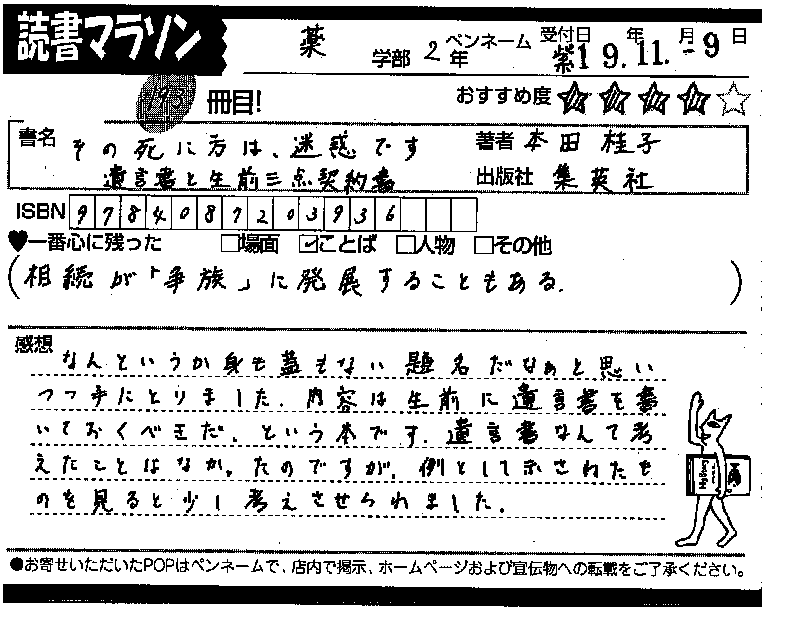 読書マラソン
薬 学部 2年 ペンネーム 紫 受付日 19年11月-9日
冊目! おすすめ度 ★★★★☆
書名 その死に方は、迷惑です 著者 本田桂子
遺言書と生前三点契約書 出版社 集英社
ISBN 9784087203936
♥一番心に残った □場面 ☑ことば □人物 □その他
(相続が「争族」に発展することもある。)
感想
なんというか身も蓋もない題名だなぁと思い
つつ手にとりました。内容は生前に遺言書を書
いておくべきだ、という本です。遺言書なんて考
えたことはなかったのですが、例として示されたも
のを見ると少し考えさせられました。
●お寄せいただいたPOPはペンネームで、店内で掲示、ホームページおよび宣伝物への転載をご了承ください。